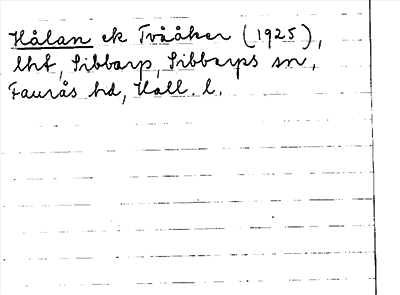 Hålan ek Tvååker (1925),
lht, Sibbarp, Sibbarps sn,
Faurås hd, Hall. l.